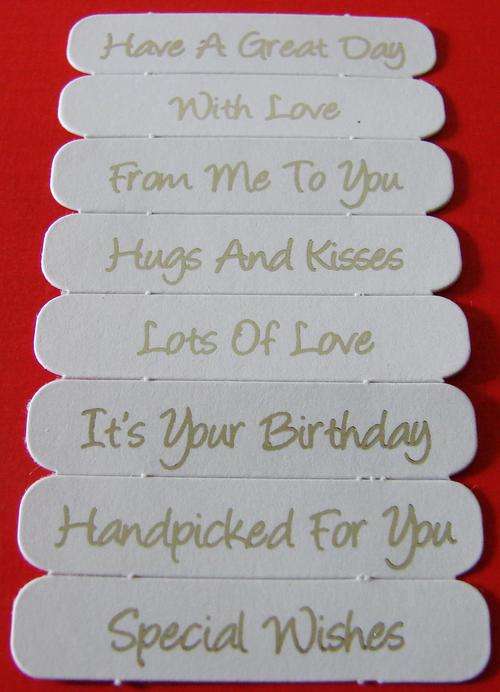 Have A Great Day
With Love
From Me To You
Hugs And Kisses
Lots Of Love
It's Your Birthday
Handpicked For You
Special Wishes